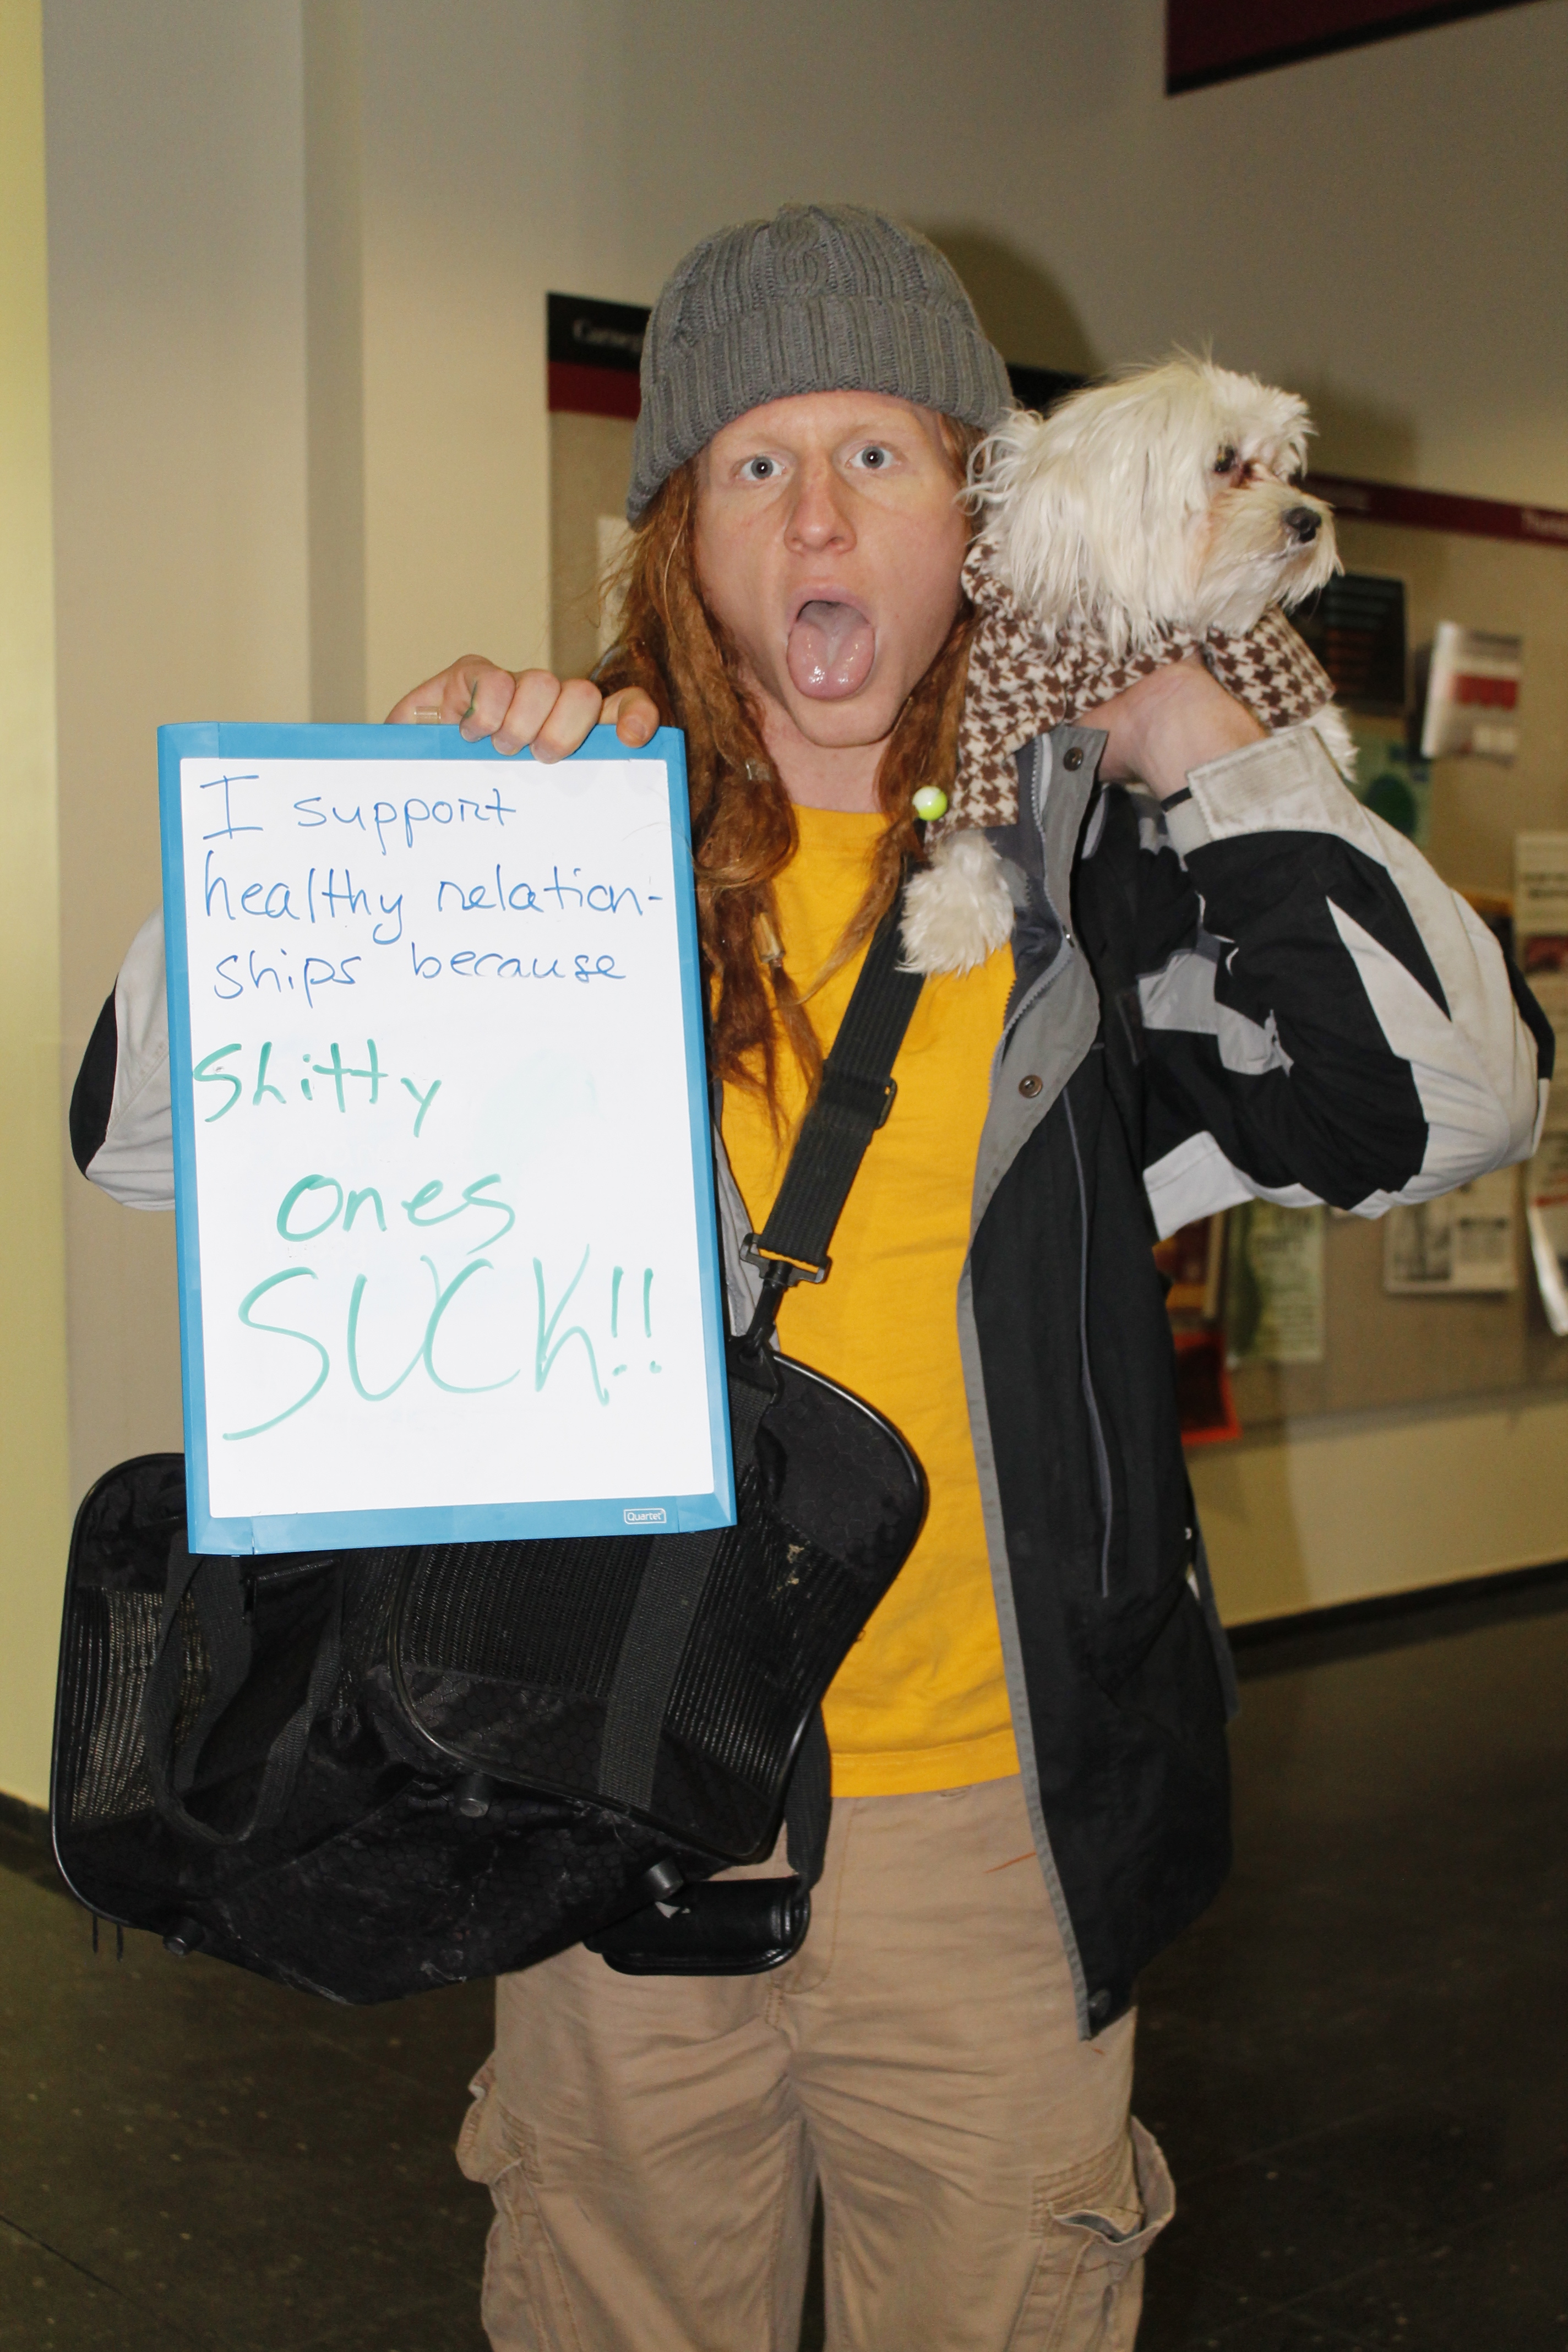 I support
healthy relation-
ships because
Shitty
ones
SUCK!!
Quartet